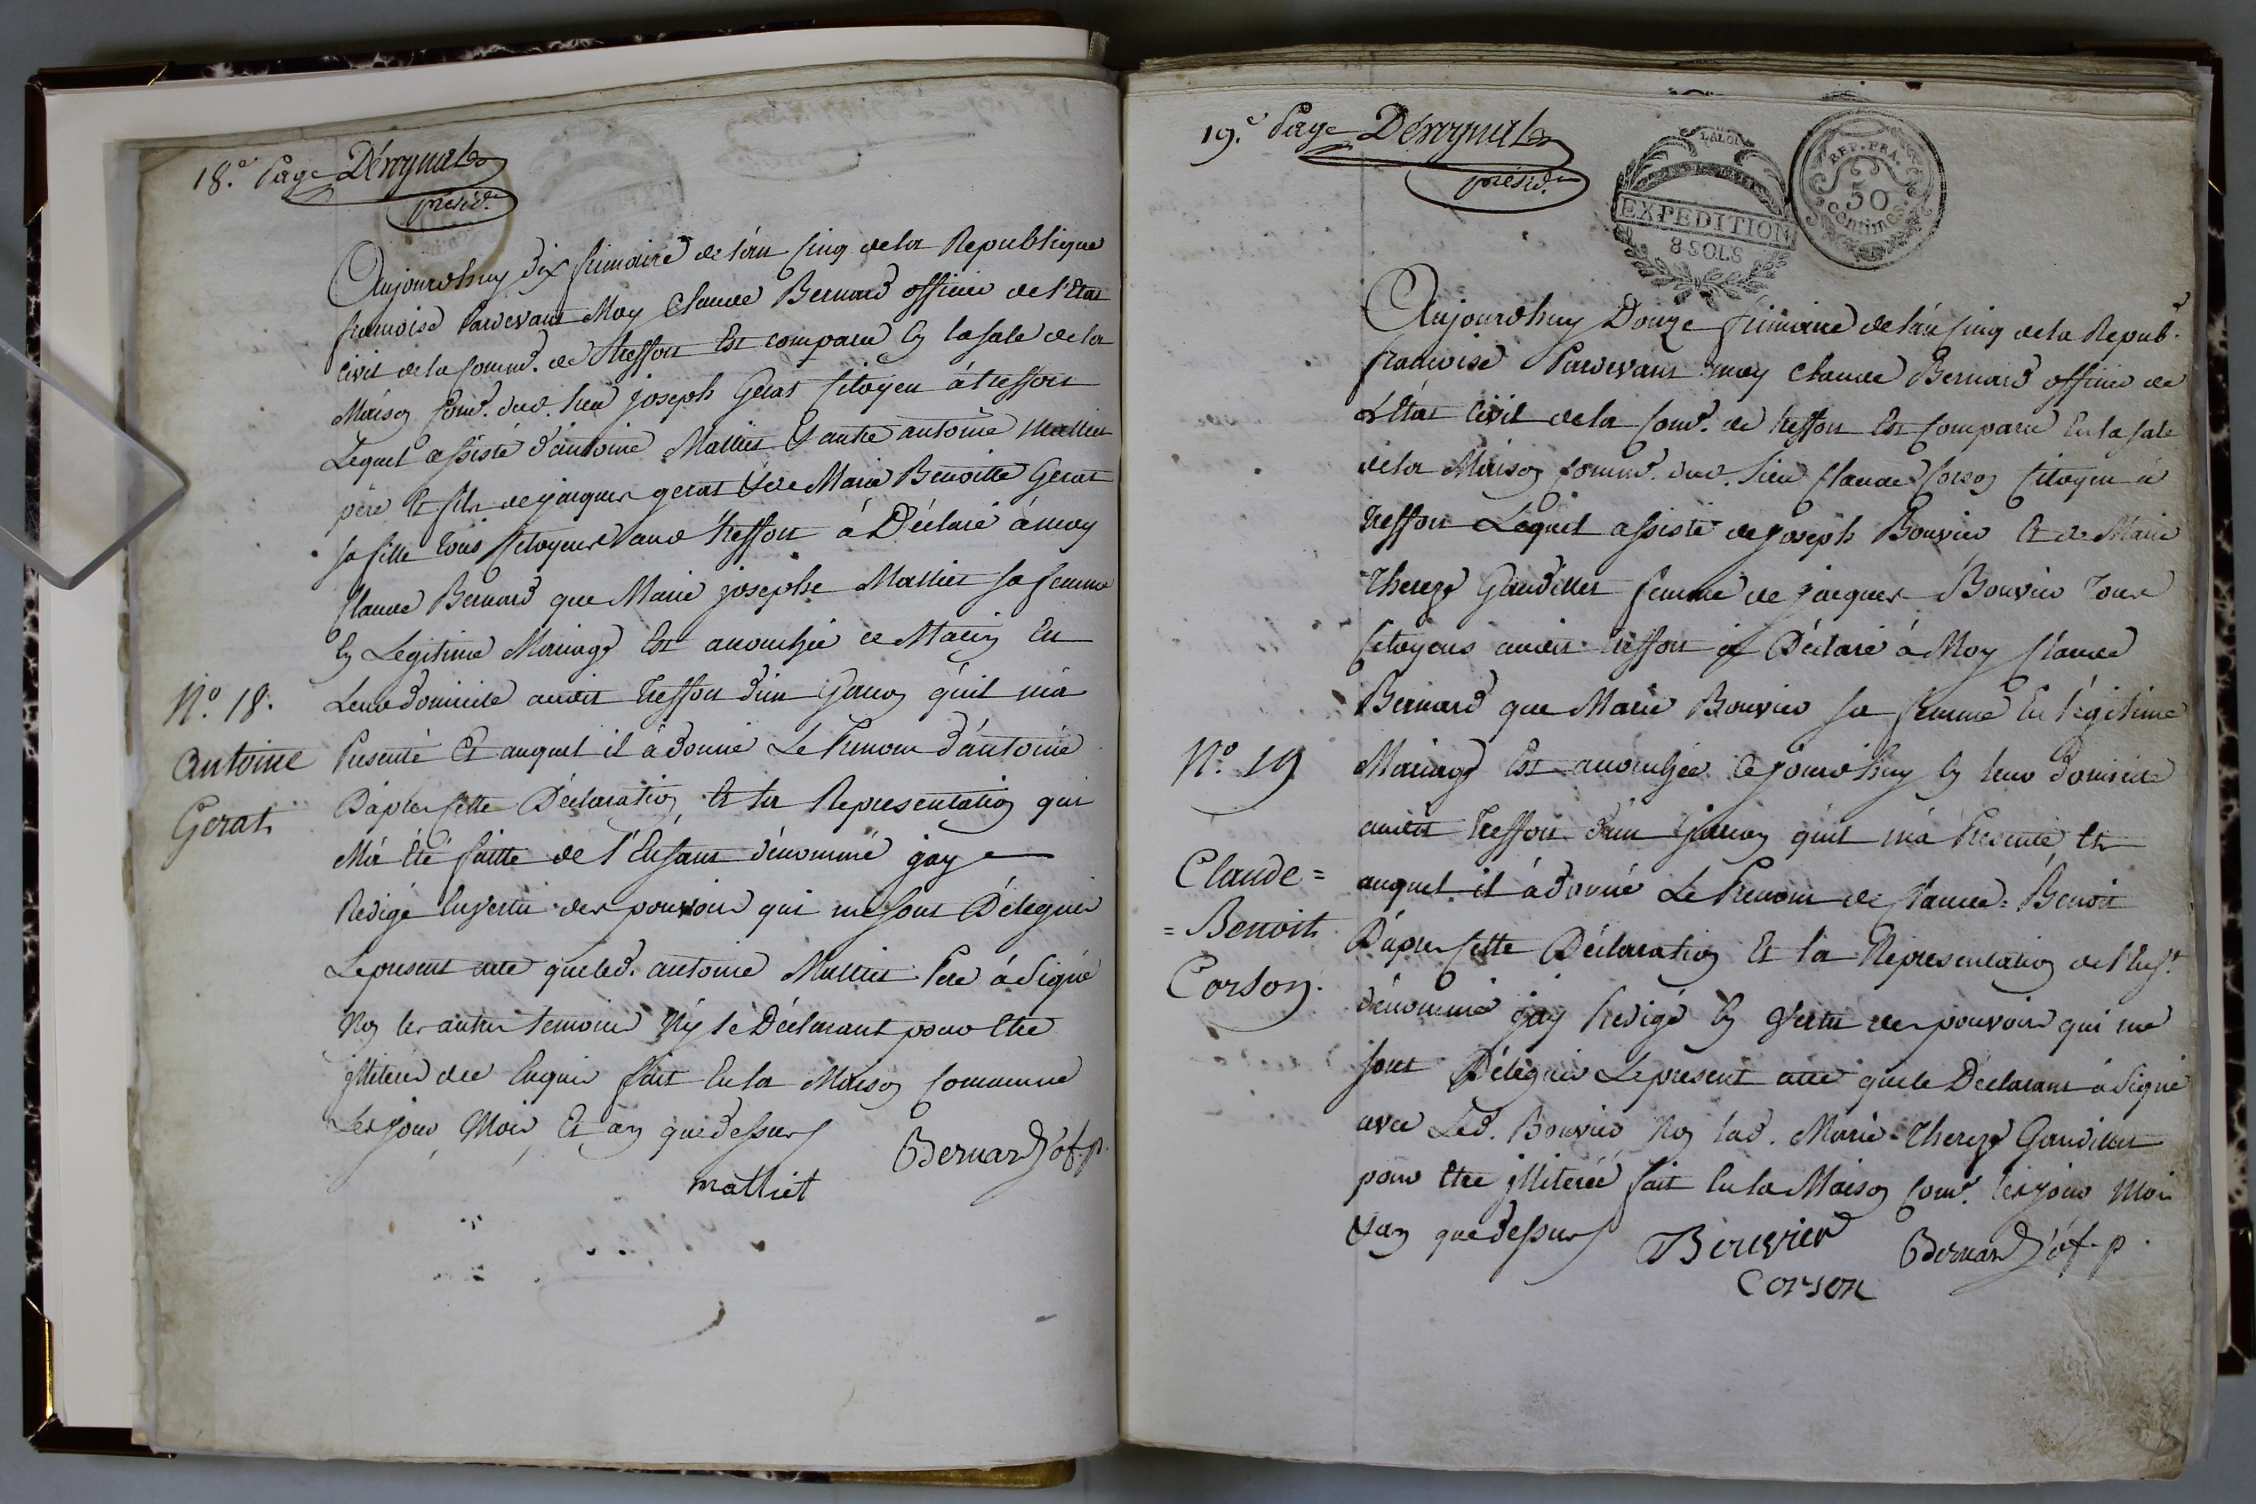 18.e Page Déroynal
présid.
Aujourdhuy dix frimaire de l'án cinq de la Republique
francoise Pardevant Moy Claude Bernard officier de l'Etat
Civil de la Comm.e de treffort Est comparu En la sale de la
Maison Com.e dud. lieu joseph Gerat Citoyen á treffort
Lequel assisté d'ántoine Malliet & autre antoine Malliet
pere Et fils de jacques gerat & de Marie Benoitte Gerat
sa fille tous Citoyens aud treffort á Déclaré á moy
Claude Bernard que Marie josephe Malliet sa femme
En Legitime Mariage Est accouchée ce Matin En
Leur domicile audit treffort d'un garcon qu'il m'a
Presenté Et auquel il á donné Le Prenom d'ántoine
D'aprés Cette Déclaration Et la Representation qui
M'a Eté faitte de l'Enfant dénommé j'ay
Redigé En vertu des pouvoirs qui me sont Délégués
Le present acte que led. antoine Malliet Pere á Signé
Non les autres temoins Ny le Déclarant pour Etre
jlliterés de ce Enquis fait En la Maison Commune
Les jour, Mois, Et an que dessus
Bernard of. p.
malliet
N.o 18.
Antoine
Gerat
19.e Page Déroynal
présid.
LA LOI
EXPEDITION
8 SOLS
REP. FRA.
50
centimes.
Aujourdhuy Douze frimaire de l'án cinq de la Repub.
francoise Pardevant moy Claude Bernard officier de
L'Etat Civil de la Com.e de treffort Est Comparu En la sale
de la Maison Comm.e dud. lieu Claude Corson Citoyen á
treffort Lequel assisté de joseph Bouvier Et de Marie
Thereze Gaudillet femme de jacques Bouvier tous
Citoyens audit treffort á Déclaré á Moy Claude
Bernard que Marie Bouvier sa femme En légitime
Mariage Est accouchée Cejourdhuy En leur Domicile
audit treffort d'un garcon qu'il m'a Presenté Et
auquel il á donné Le Prenom de Claude = Benoit
D'aprés Cette Déclaration Et la Representation de l'Enf.t
dénommé j'ay Redigé En Vertu des pouvoirs qui me
sont Délégués Le present acte que le Declarant á Signé
avec Led. Bouvier Non lad. Marie-Thereze Gaudillet
pour Etre jlliterée fait En la Maison Com.e les jour Mois
& an que dessus
Bouvier
Bernard of. p.
Corson
N.o 19
Claude =
= Benoit
Corson.